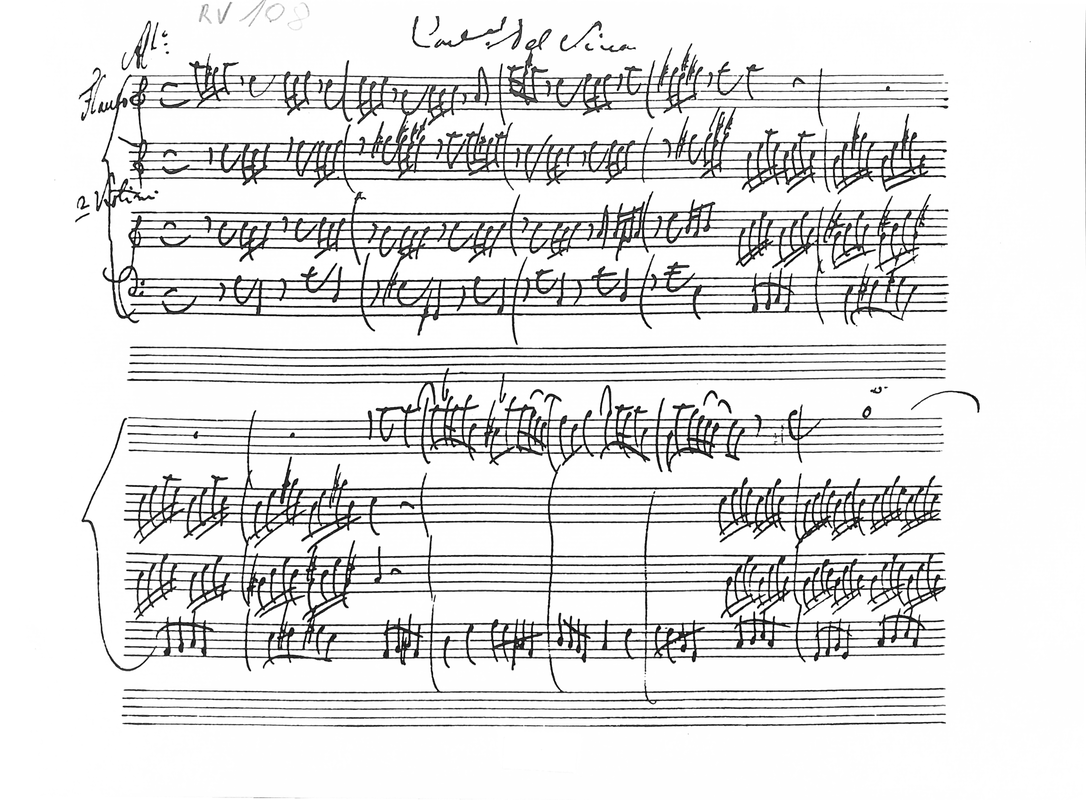 RV 108
Del Viva
All:
Flauto
2 Violini